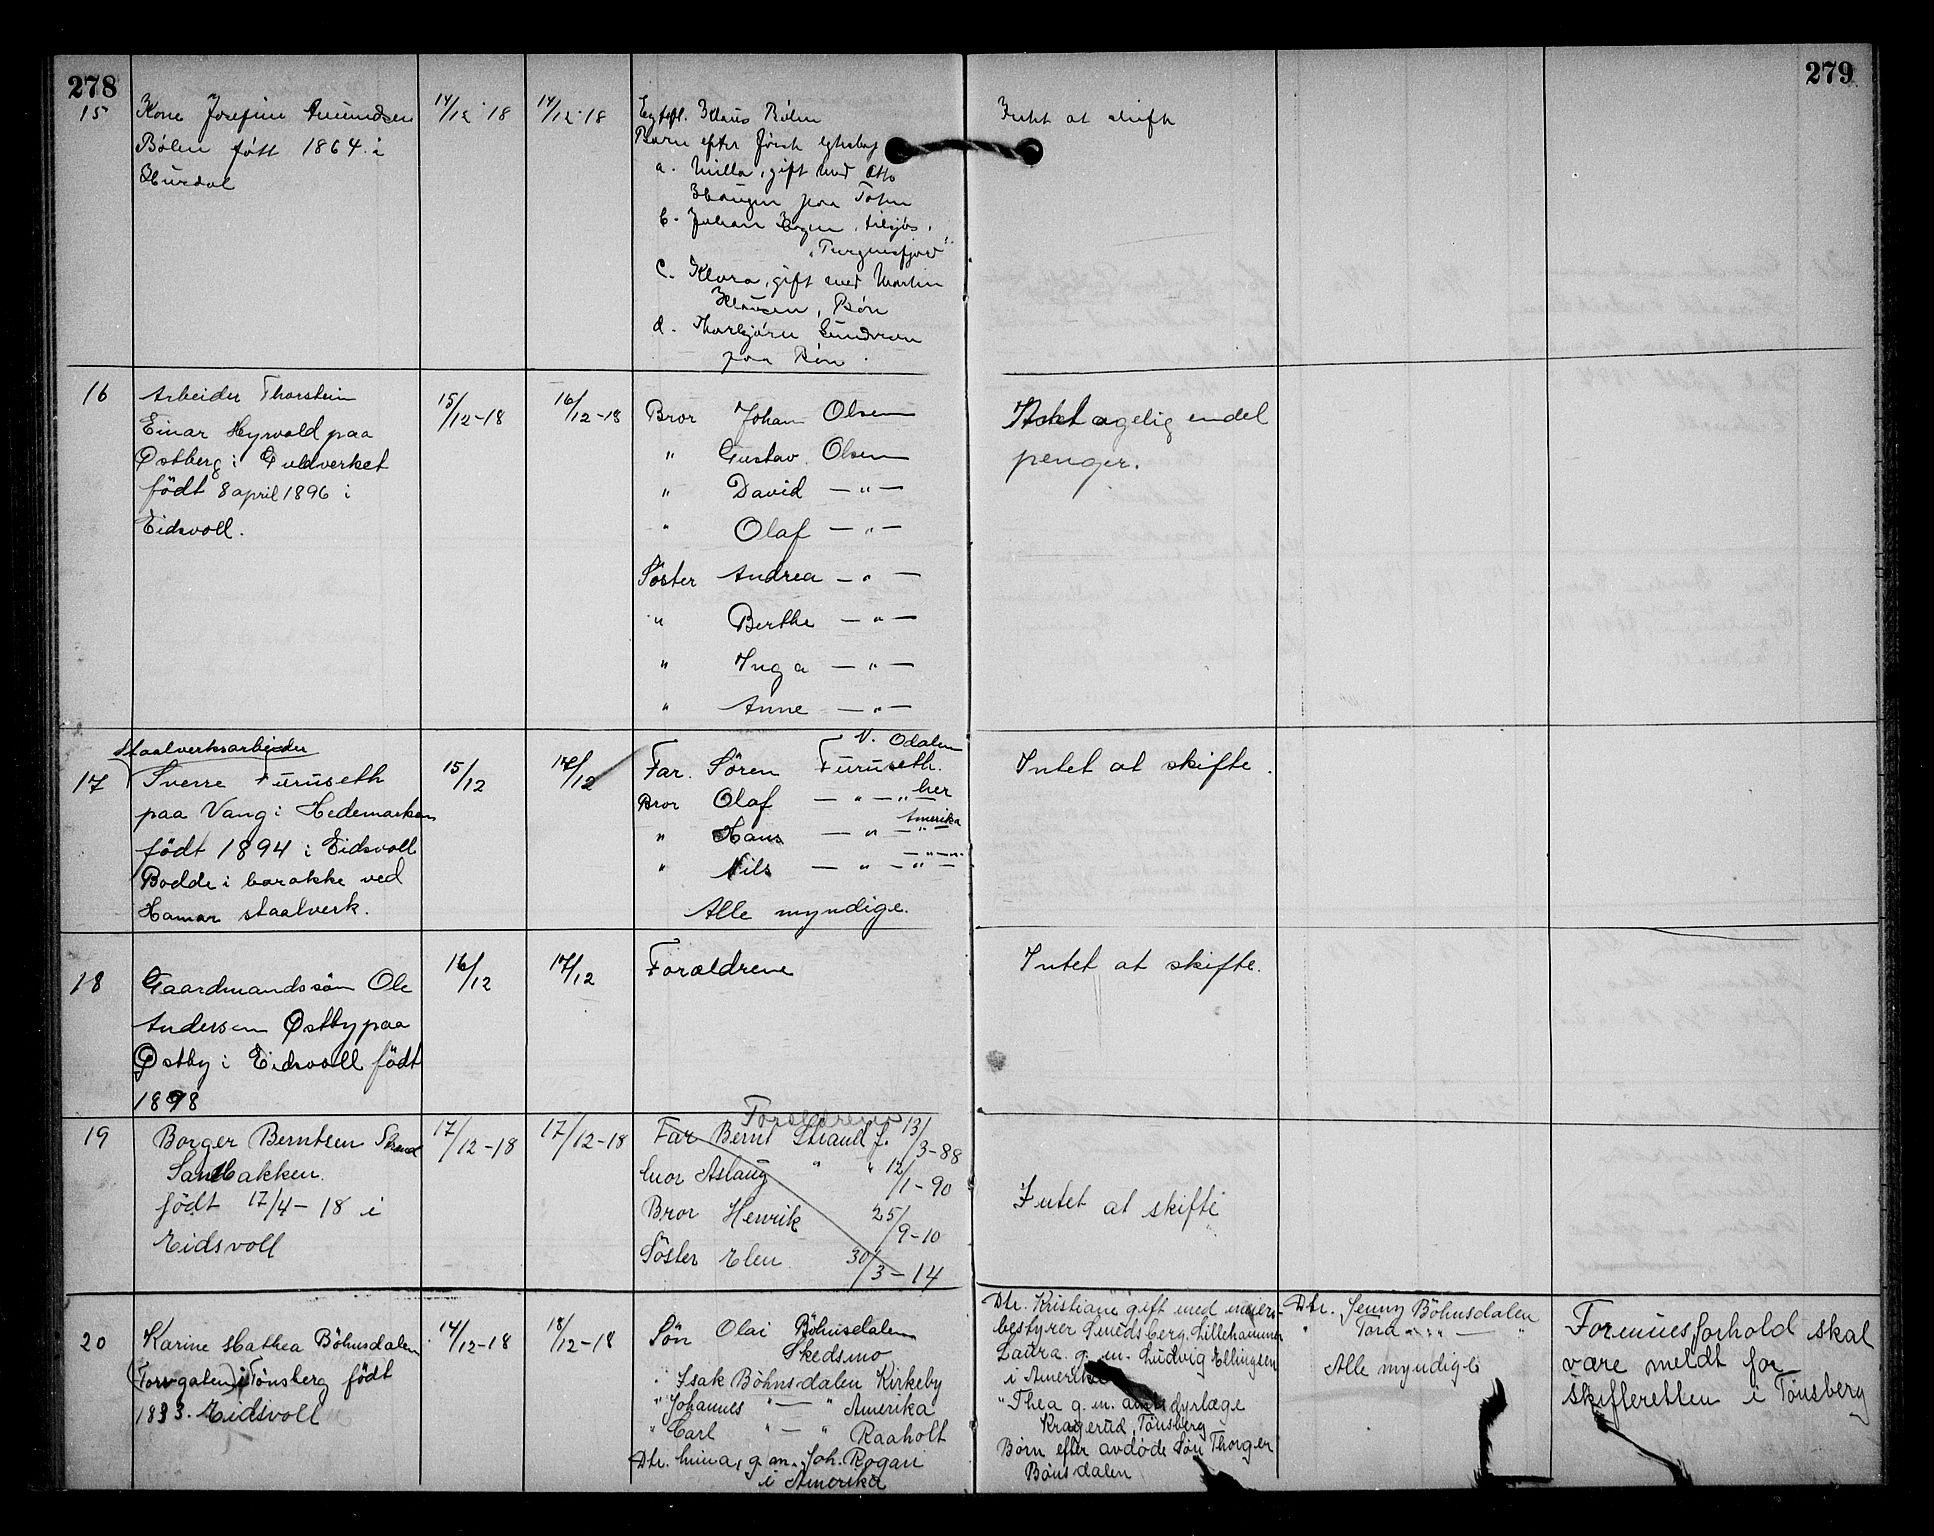 278
279
15
Kone Josefine Amundsen
Bølen født 1864 i
Hurdal
14/12-18
14/12-18
Egtefl. Klaus Bølen
Barn efter første
a. Milla, gift med Otto
Haugen paa Toten
b. Johan
c. Klara, gift med Martin
Bøn
d. Thorbjørn
paa Bøn.
Intet at skifte
16
Arbeider Thorstein
Einar Hyrvold paa
Østberg i Guldverket
födt 8 april 1896 i
Eidsvoll.
15/12-18
16/12-18
Bror Johan Olsen
" Gustav Olsen
" David — " —
" Olaf — " —
Söster Andrea — " —
" Berthe — " —
" Inga — " —
" Anne — " —
endel
penger.
17
Staalverksarbeider
Sverre Furuseth
paa Vang i Hedemarken
födt 1894 i Eidsvoll
Bodde i barakke ved
Hamar staalverk.
15/12
17/12
V. Odalen
Far. Sören Furuseth.
Bror Olaf — " — " her
" Hans — " — " Amerika
" Nils — " — " —
Alle myndige.
Intet at skifte.
18
Gaardmandssön Ole
Andersen Østby paa
Østby i Eidsvoll födt
1898
16/12
17/12
Forældrene
Intet at skifte.
19
Borger Berntsen Strand
Sandbakken.
födt 17/4-18 i
Eidsvoll
17/12-18
17/12-18
Forældrene
Far Bernt Strand f. 13/3-88
Mor Aslaug " " 12/1-90
Bror Henrik 25/9-10
Söster Elen 30/3-14
Intet at skifte
20
Karine Mathea Böhnsdalen
(Torvgaten) i Tönsberg födt
1833. Eidsvoll
14/12-18
18/12-18
Sön Olai Böhnsdalen
Skedsmo
" Isak Böhnsdalen Kirkeby
" Johannes " — " Amerika
" Carl " — " Raaholt
Dtr. Mina, g. m. Joh. Rogan
i Amerika
Dtr. Kristiane gift med meieri-
bestyrer Smedsberg. Lillehammer
Laura g. m. Ludvig Ellingsen
i Amerika
" Thea g. m. amtsdyrlæge
Kragerud, Tönsberg
Börn efter avdöde sön Thorger
Bönsdalen
Dtr. Jenny Böhnsdalen
" Tora " — "
Alle myndige
Formuesforhold skal
være meldt for
skifteretten i Tönsberg